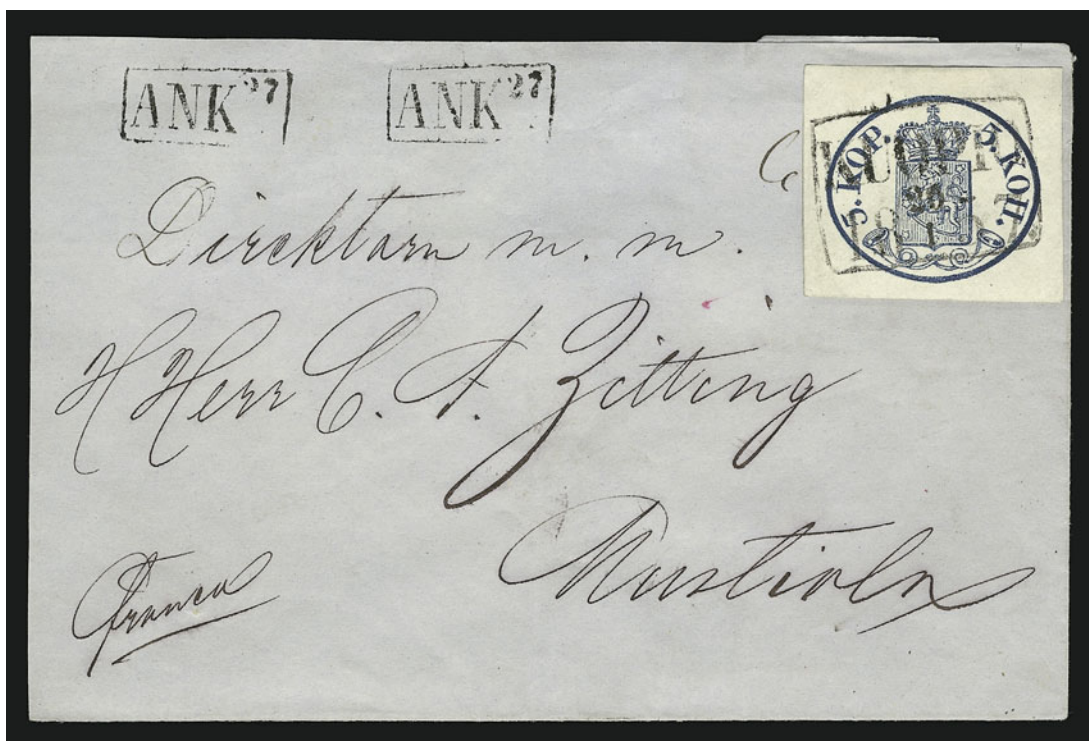 ANK 27
ANK 27
5. KOP. 5. КОП.
Direktorn m. m.
HHerr C. F. Zitting
Mustiala
Franco